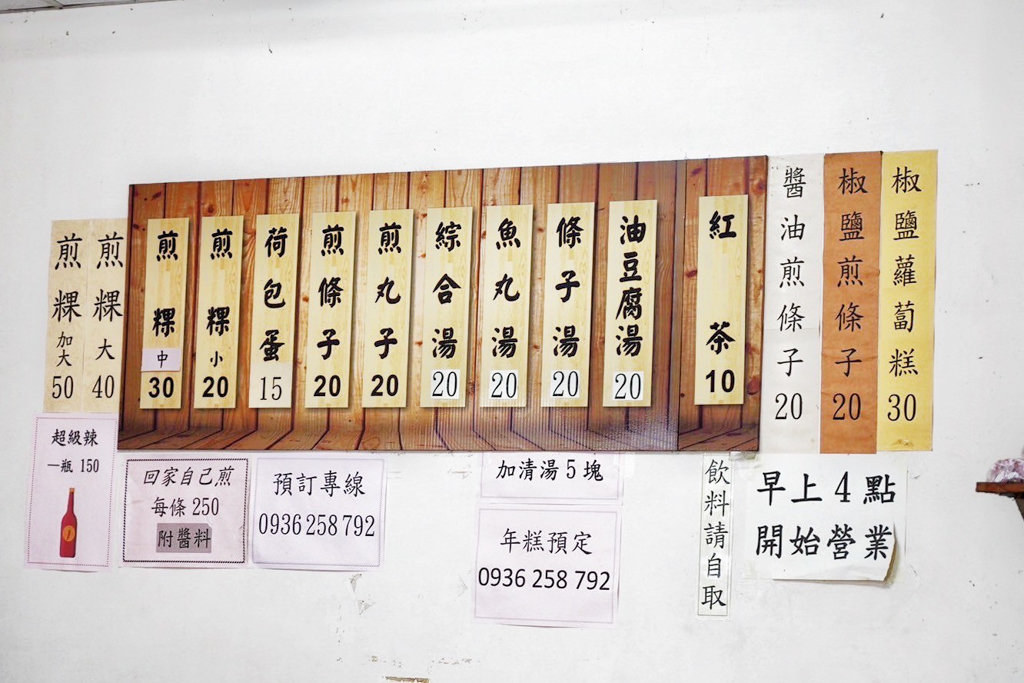 煎粿加大50
煎粿大40
煎粿中30
煎粿小20
荷包蛋15
煎條子20
煎丸子20
綜合湯20
魚丸湯20
條子湯20
油豆腐湯20
紅茶10
醬油煎條子20
椒鹽煎條子20
椒鹽蘿蔔糕30
超級辣
一瓶 150
回家自己煎
每條 250
附醬料
預訂專線
0936 258 792
加清湯 5 塊
年糕預定
0936 258 792
飲料請自取
早上 4 點
開始營業